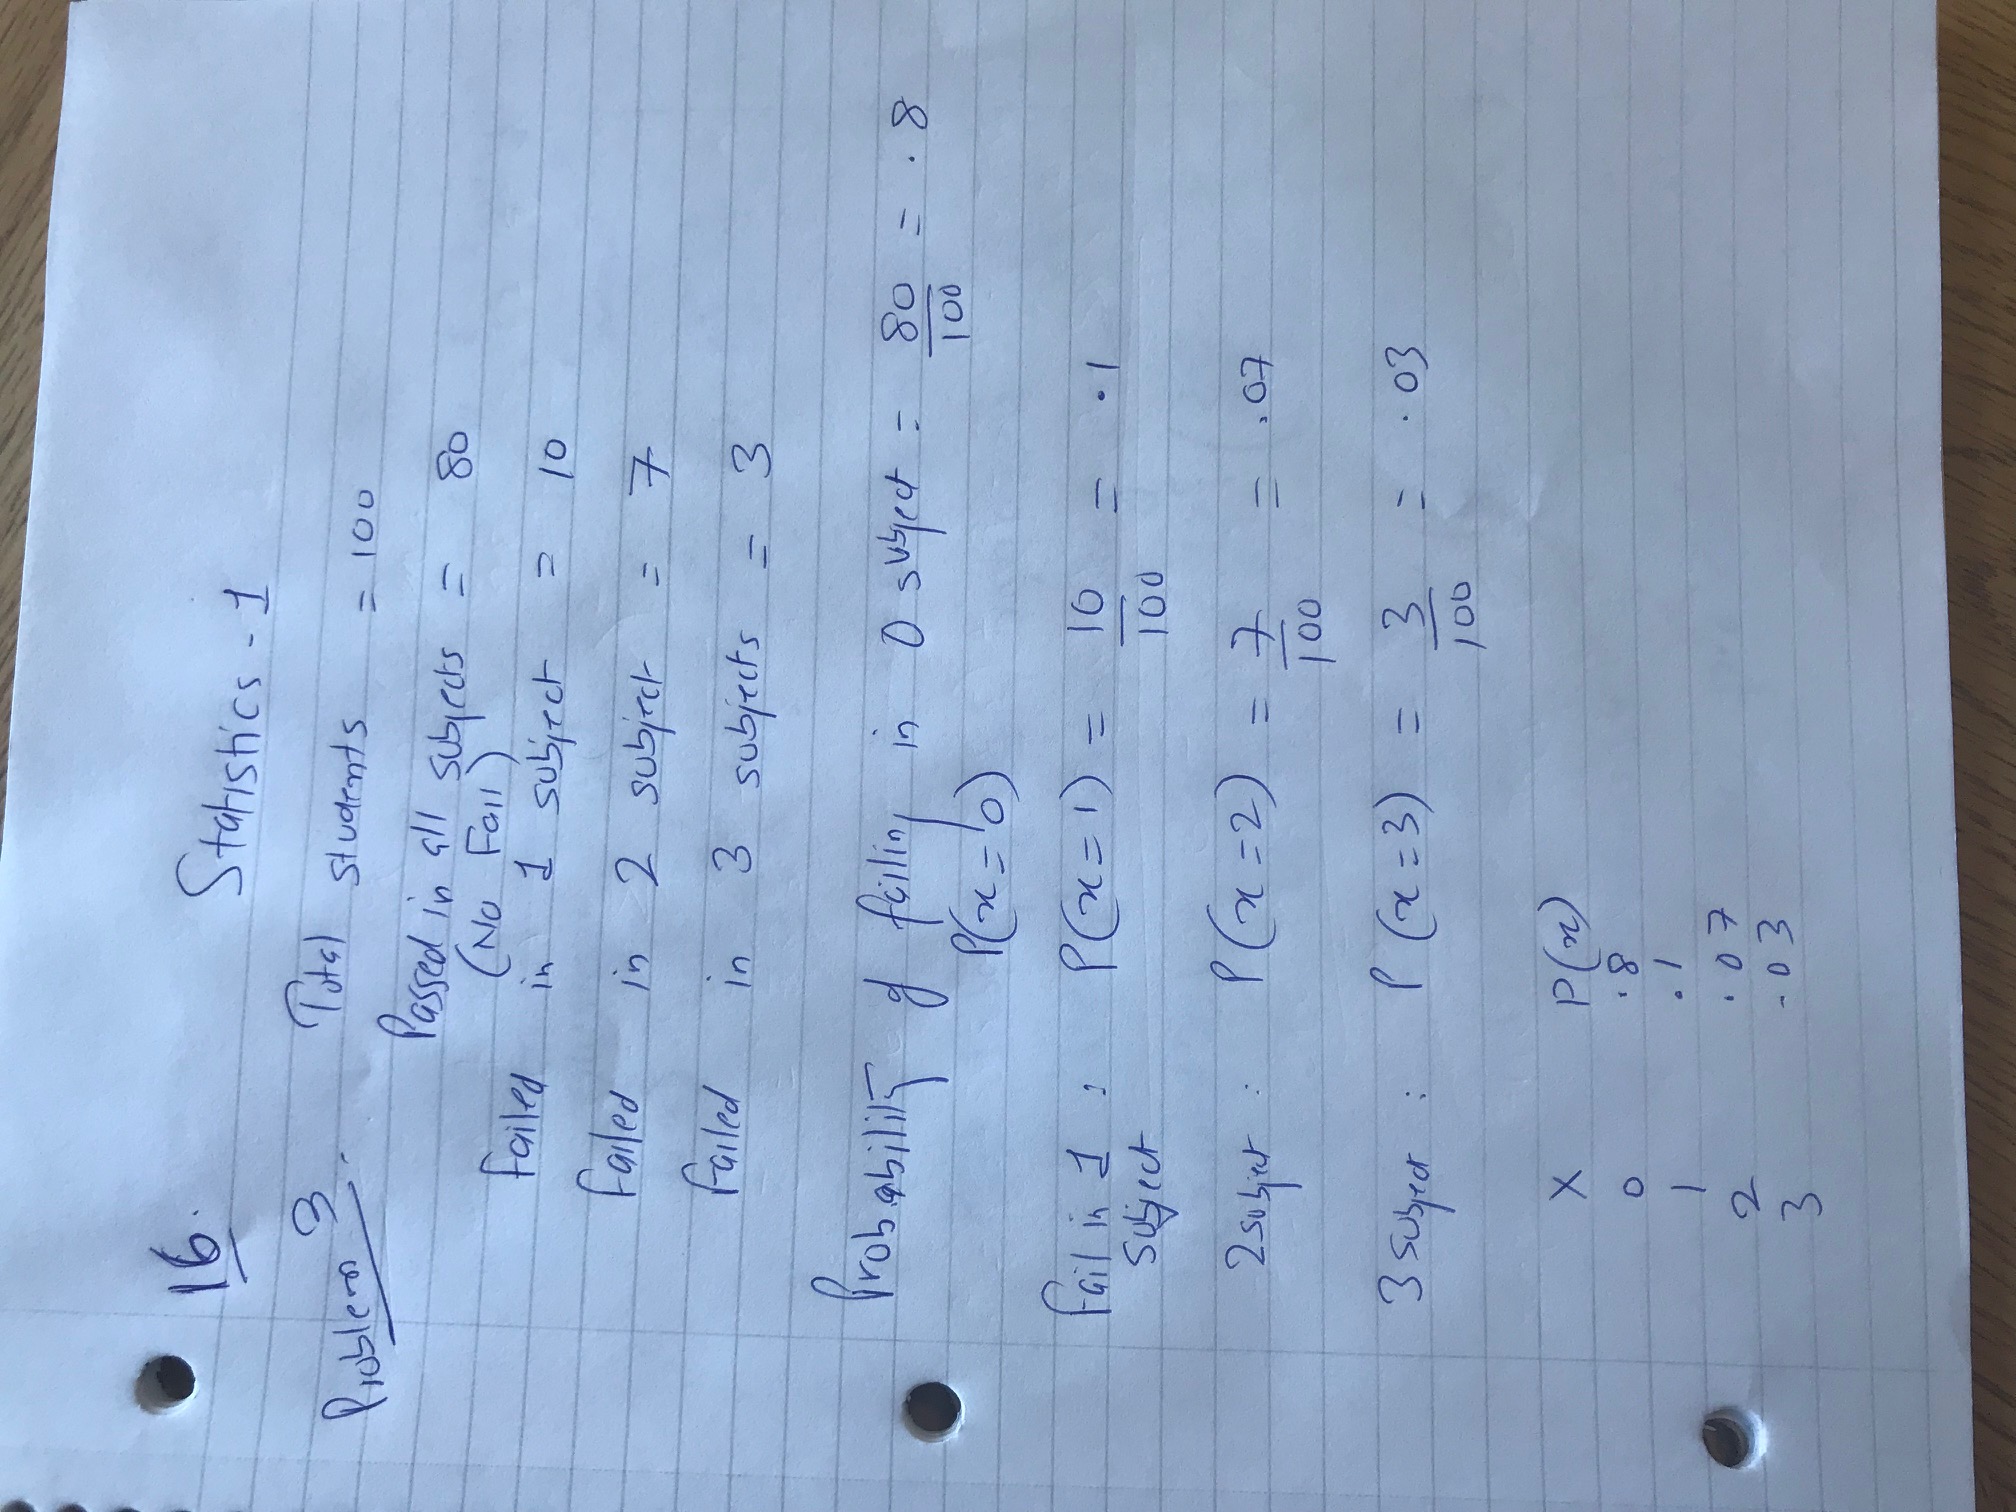 16.
Statistics - 1
Problem 3.
Total students = 100
Passed in all subjects = 80
(No Fail)
Failed in 1 subject = 10
Failed in 2 subject = 7
Failed in 3 subjects = 3
Probability of failing in 0 subject = 80/100 = .8
P(x=0)
Fail in 1 subject : P(x=1) = 10/100 = .1
2 subject : P(x=2) = 7/100 = .07
3 subject : P(x=3) = 3/100 = .03
X P(x)
0 .8
1 .1
2 .07
3 .03